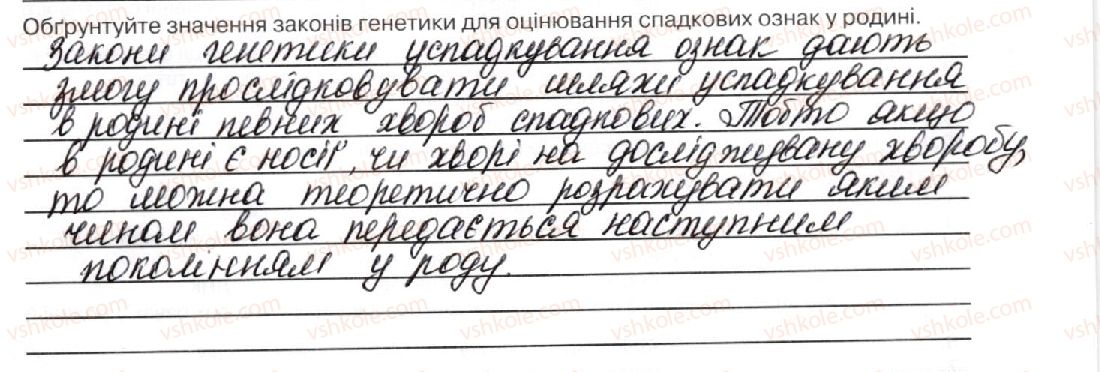 Обґрунтуйте значення законів генетики для оцінювання спадкових ознак у родині.
Закони генетики успадкування ознак дають
змогу прослідковувати шляхи успадкування
в родині певних хвороб спадкових. Тобто якщо
в родині є носії, чи хворі на досліджувану хворобу,
то можна теоретично розрахувати яким
чином вона передається наступним
поколінням у роду.